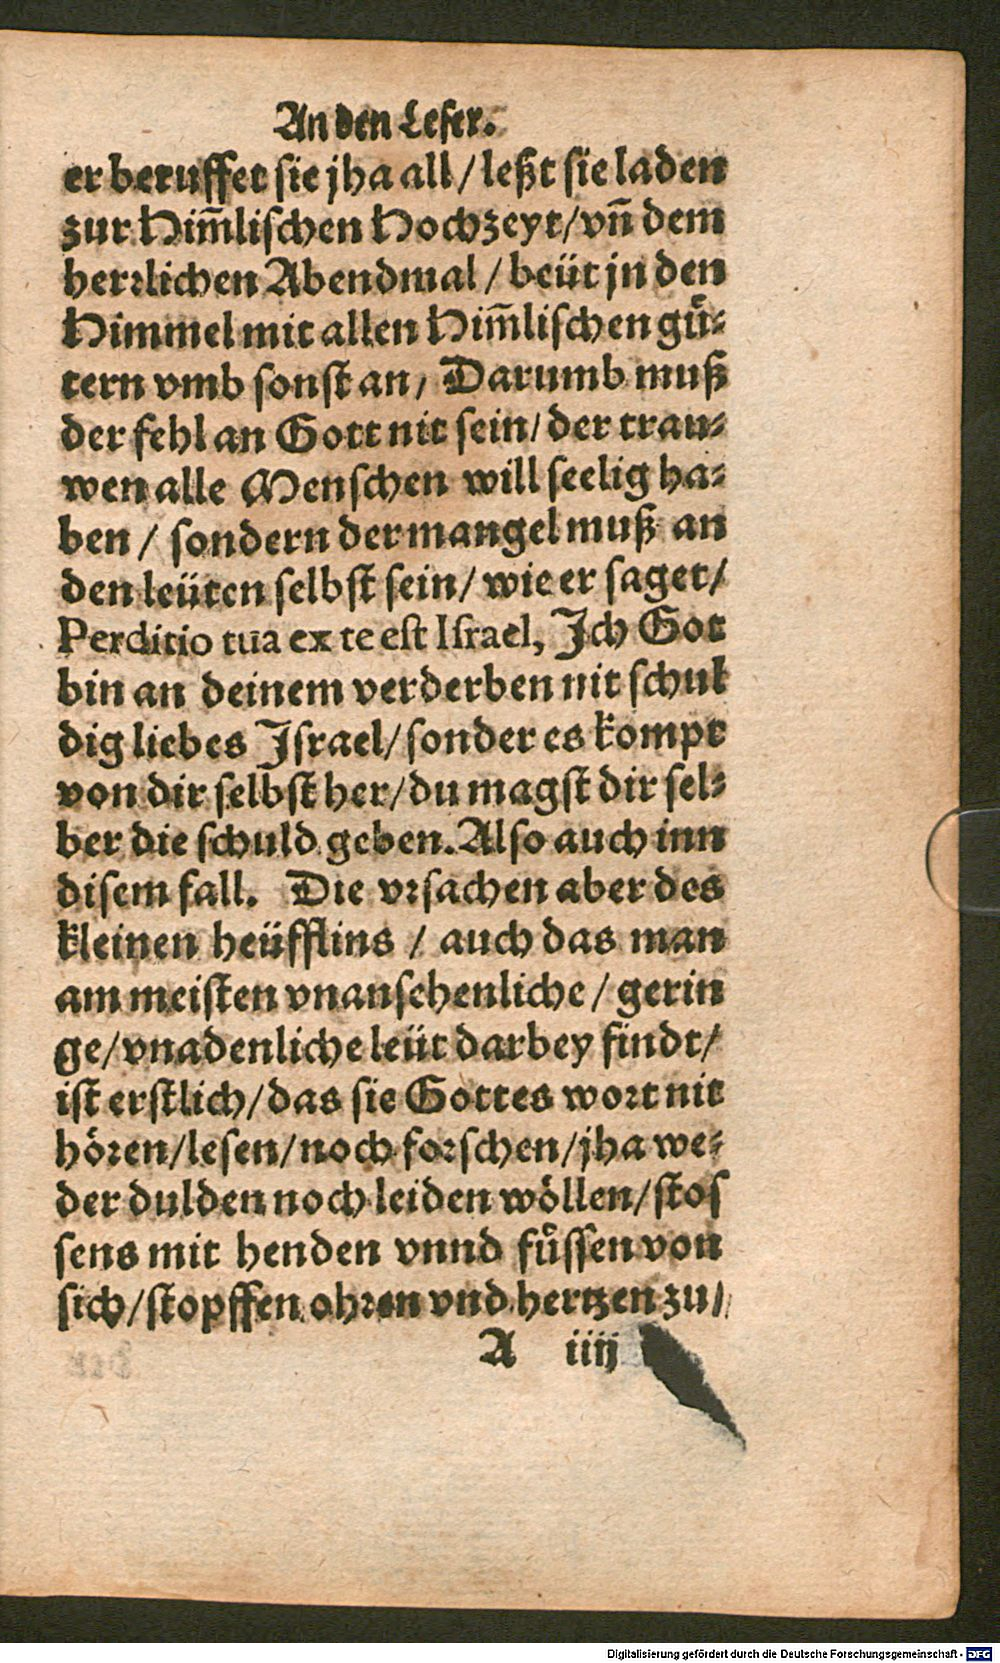 An den Leser.
er beruffet sie jha all / leßt sie laden
zur Him̄lischen Hochzeyt / vn̄ dem
herꝛlichen Abendmal / beüt jn den
Himmel mit allen Him̄lischen guͤ⸗
tern vmb sonst an / Darumb muß
der fehl an Gott nit sein / der trau⸗
wen alle Menschen will seelig ha⸗
ben / sondern der mangel muß an
den leüten selbst sein / wie er saget /
Perditio tua ex te est Israel, Ich Got
bin an deinem verderben nit schul
dig liebes Israel / sonder es kompt
von dir selbst her / du magst dir sel⸗
ber die schuld geben. Also auch inn
disem fall. Die vꝛsachen aber des
kleinen heüfflins / auch das man
am meisten vnansehenliche / gerin
ge / vnadenliche leüt darbey findt /
ist erstlich / das sie Gottes woꝛt nit
höꝛen / lesen / noch foꝛschen / jha we⸗
der dulden noch leiden wöllen / stos
sens mit henden vnnd fuͤssen von
sich / stopffen ohꝛen vnd hertzen zu /
A iiij
Digitalisierung gefördert durch die Deutsche Forschungsgemeinschaft - DFG